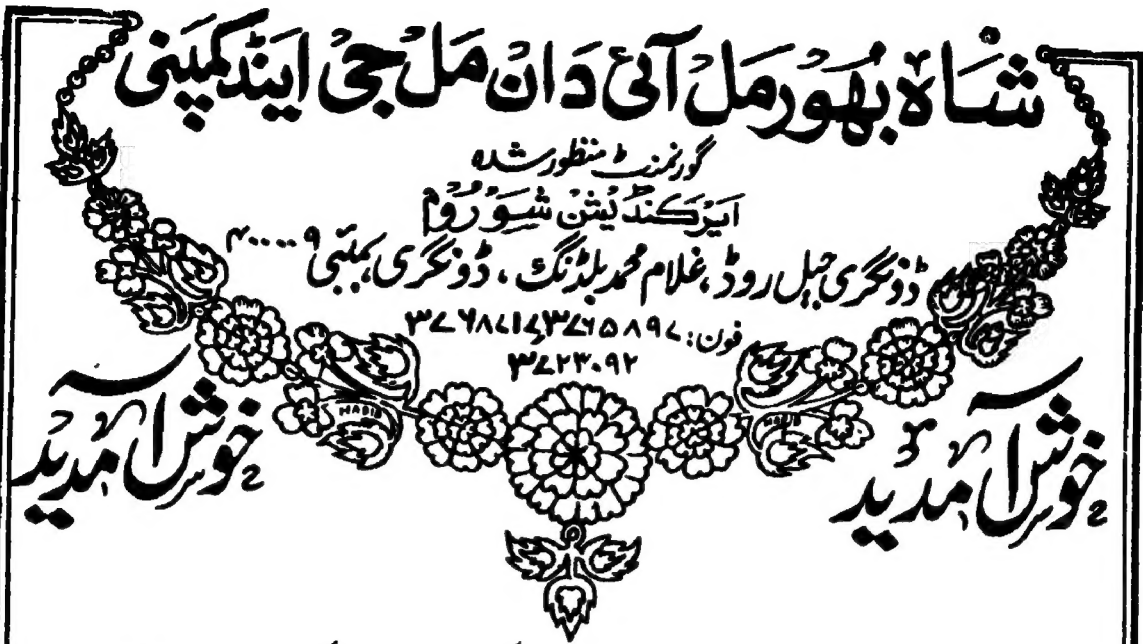 شاہ بھورمل آئی دان مل جی اینڈ کمپنی
گورنمنٹ منظور شدہ
ایرکنڈیشن شو روم
ڈونگری جیل روڈ، غلام محمد بلڈنگ، ڈونگری، بمبئی ۴۰۰۰۰۹
فون: ۳۷۶۵۸۹۷ / ۳۷۶۸۷۱۶
۳۷۲۳۰۹۲
خوش آمدید
خوش آمدید
HABIB
HABIB